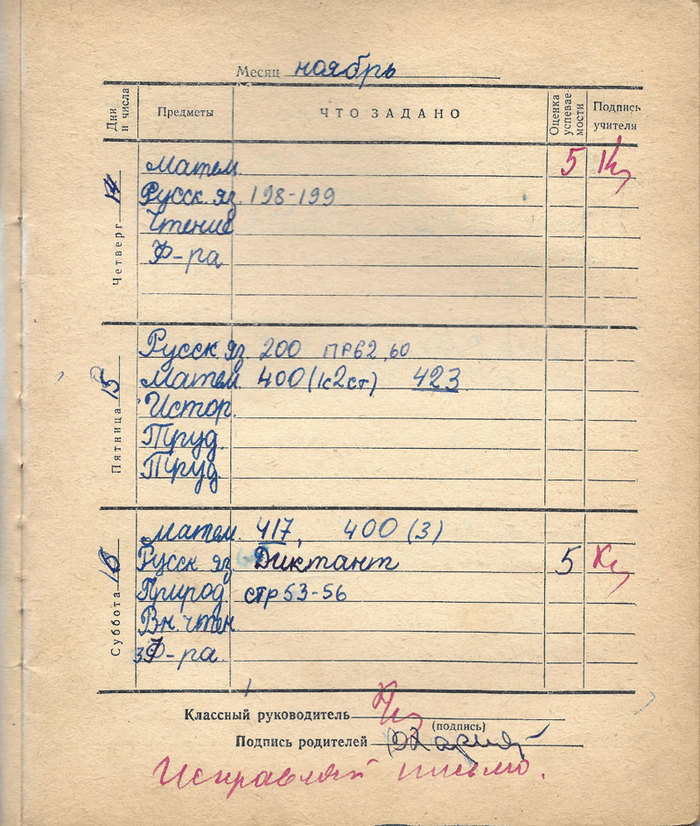 Месяц ноябрь
Дни и числа Предметы ЧТО ЗАДАНО Оценка успеваемости Подпись учителя
Четверг 14
Матем. 5
Русск. яз. 198-199
Чтение
Ф-ра
Пятница 15
Русск. яз. 200 ПР62,60
Матем. 400 (1к2ст) 423
Истор.
Труд.
Труд.
Суббота 16
Матем. 417, 400 (3)
Русск. яз. Диктант 5
Природ. стр 53-56
Вн. чтен.
Ф-ра
Классный руководитель
(подпись)
Подпись родителей
Исправляй письмо.